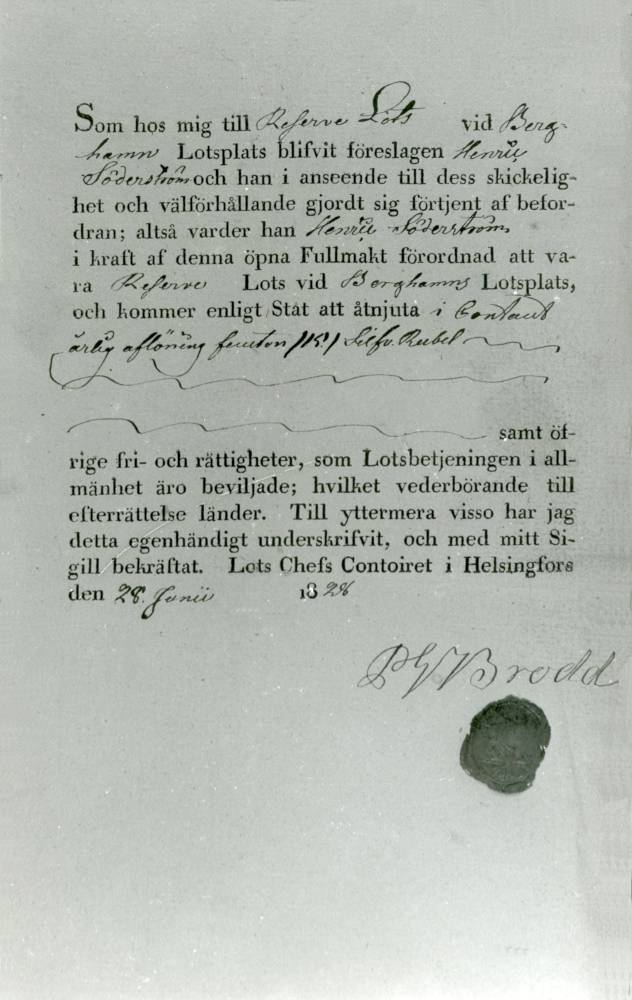 Som hos mig till Reserve Lots vid Berg-
hamn Lotsplats blifvit föreslagen Henric
Söderström och han i anseende till dess skickelig-
het och välförhållande gjordt sig förtjent af befor-
dran; altså varder han Henric Söderström
i kraft af denna öpna Fullmakt förordnad att va-
ra Reserve Lots vid Berghamns Lotsplats,
och kommer enligt Stat att åtnjuta i Contant
årlig aflöning femton /15/ Silfv. Rubel
samt öf-
rige fri- och rättigheter, som Lotsbetjeningen i all-
mänhet äro beviljade; hvilket vederbörande till
efterrättelse länder. Till yttermera visso har jag
detta egenhändigt underskrifvit, och med mitt Si-
gill bekräftat. Lots Chefs Contoiret i Helsingfors
den 28. Junii 1828
Brodd